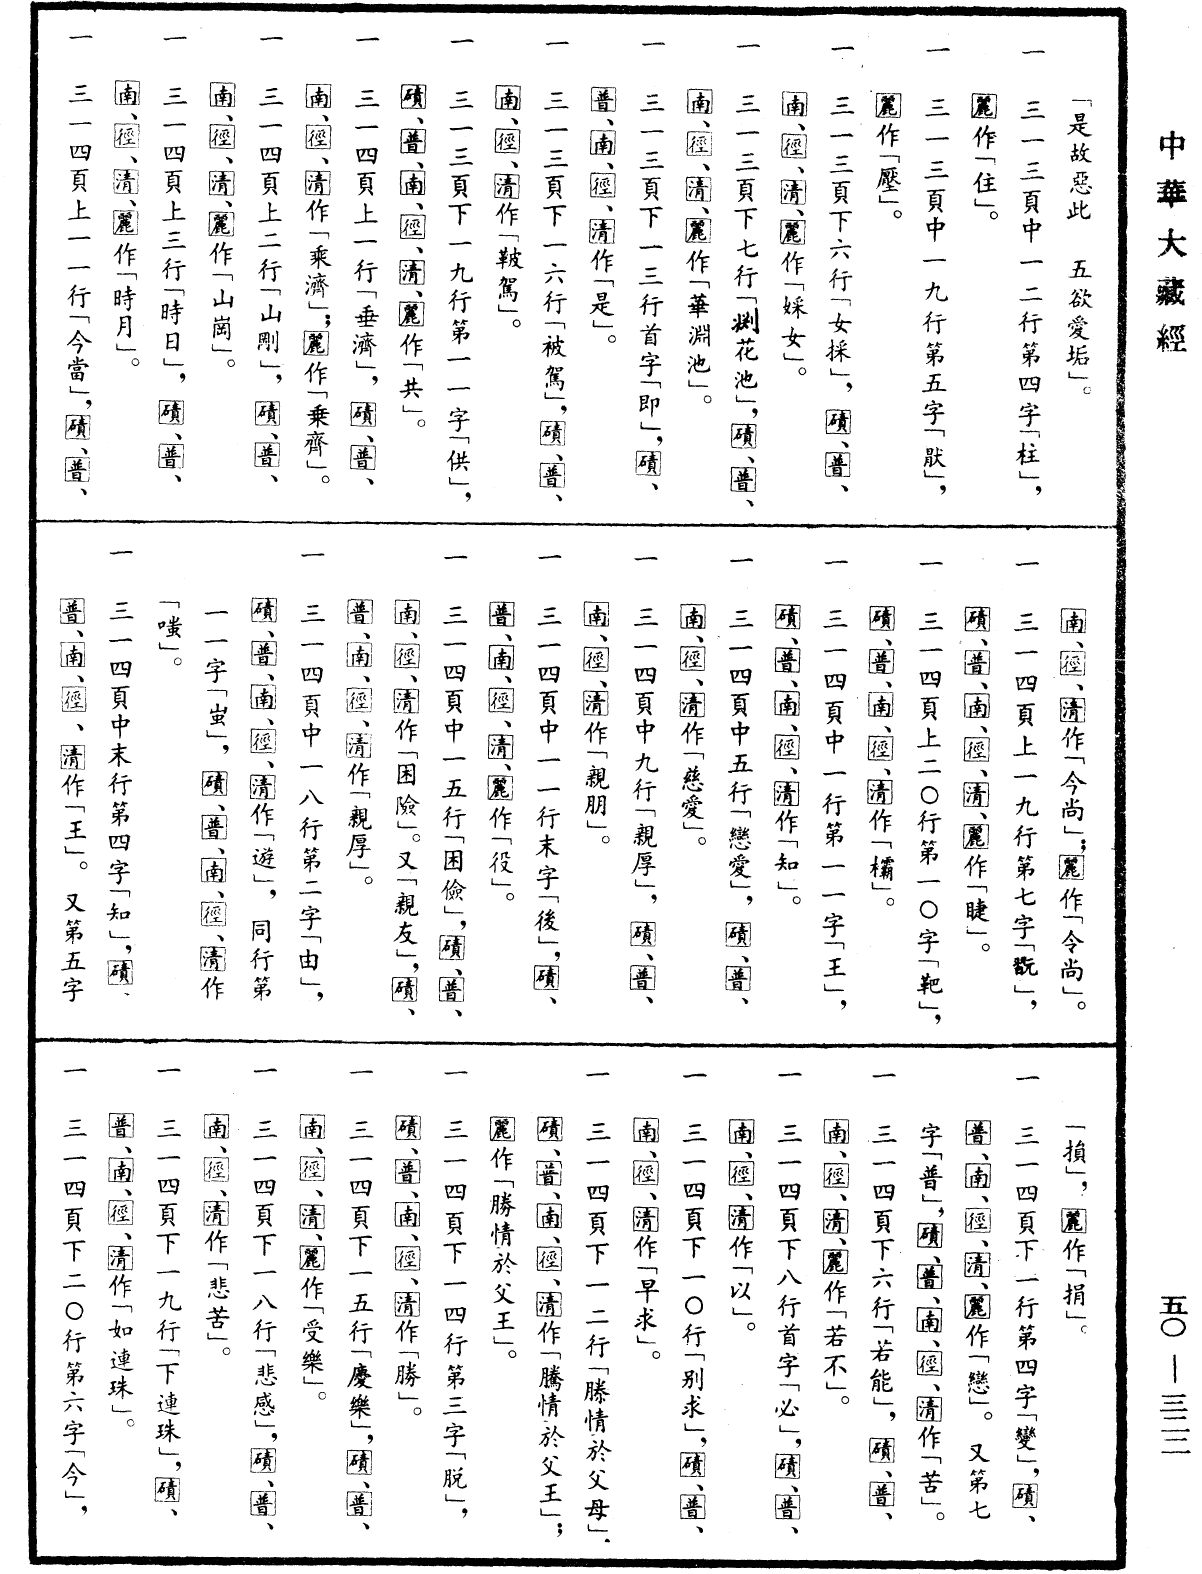 中華大藏經
「是故惡此　五欲愛垢」。
一　三一三頁中一二行第四字「柱」，
麗作「住」。
一　三一三頁中一九行第五字「猒」，
麗作「壓」。
一　三一三頁下六行「女採」，磧、普、
南、徑、清、麗作「婇女」。
一　三一三頁下七行「渕花池」，磧、普、
南、徑、清、麗作「華淵池」。
一　三一三頁下一三行首字「即」，磧、
普、南、徑、清作「是」。
一　三一三頁下一六行「被駕」，磧、普、
南、徑、清作「鞁駕」。
一　三一三頁下一九行第一一字「供」，
磧、普、南、徑、清、麗作「共」。
一　三一四頁上一行「垂濟」，磧、普、
南、徑、清作「乘濟」；麗作「乗齊」。
一　三一四頁上二行「山剛」，磧、普、
南、徑、清、麗作「山崗」。
一　三一四頁上三行「時日」，磧、普、
南、徑、清、麗作「時月」。
一　三一四頁上一一行「今當」，磧、普、
南、徑、清作「今尚」；麗作「令尚」。
一　三一四頁上一九行第七字「翫」，
磧、普、南、徑、清、麗作「睫」。
一　三一四頁上二〇行第一〇字「靶」，
磧、普、南、徑、清作「欛」。
一　三一四頁中一行第一一字「王」，
磧、普、南、徑、清作「知」。
一　三一四頁中五行「戀愛」，磧、普、
南、徑、清作「慈愛」。
一　三一四頁中九行「親厚」，磧、普、
南、徑、清作「親朋」。
一　三一四頁中一一行末字「後」，磧、
普、南、徑、清、麗作「役」。
一　三一四頁中一五行「困儉」，磧、普、
南、徑、清作「困險」。又「親友」，磧、
普、南、徑、清作「親厚」。
一　三一四頁中一八行第二字「由」，
磧、普、南、徑、清作「遊」，同行第
一一字「蚩」，磧、普、南、徑、清作
「嗤」。
一　三一四頁中末行第四字「知」，磧、
普、南、徑、清作「王」。又第五字
「損」，麗作「捐」。
一　三一四頁下一行第四字「變」，磧、
普、南、徑、清、麗作「戀」。又第七
字「普」，磧、普、南、徑、清作「苦」。
一　三一四頁下六行「若能」，磧、普、
南、徑、清、麗作「若不」。
一　三一四頁下八行首字「必」，磧、普、
南、徑、清作「以」。
一　三一四頁下一〇行「别求」，磧、普、
南、徑、清作「早求」。
一　三一四頁下一二行「縢情於父母」，
磧、普、南、徑、清作「騰情於父王」；
麗作「勝情於父王」。
一　三一四頁下一四行第三字「脱」，
磧、普、南、徑、清作「勝」。
一　三一四頁下一五行「慶樂」，磧、普、
南、徑、清、麗作「受樂」。
一　三一四頁下一八行「悲感」，磧、普、
南、徑、清作「悲苦」。
一　三一四頁下一九行「下連珠」，磧、
普、南、徑、清作「如連珠」。
一　三一四頁下二〇行第六字「今」，
五〇—三二二